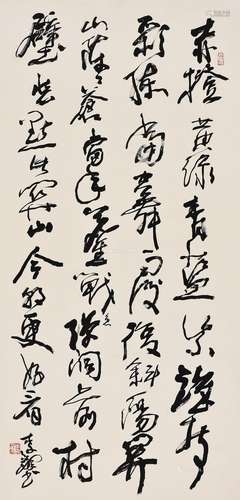 赤橙黄绿青蓝紫谁持
彩练当空舞雨后复斜阳关
山阵阵苍当年鏖战急弹洞前村
壁装点此关山今朝更好看